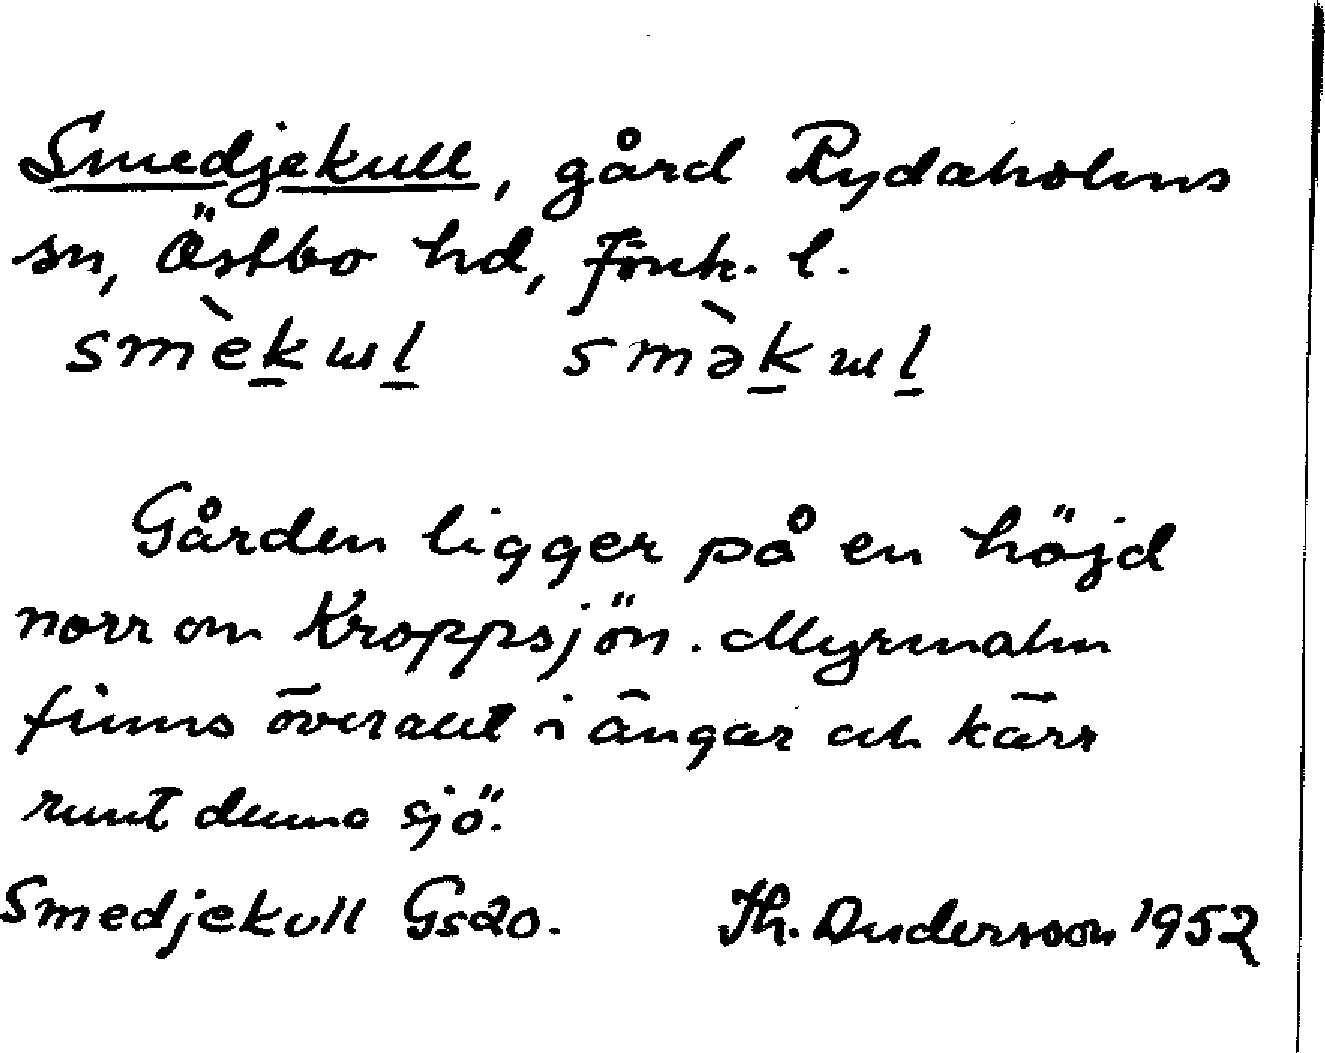 Smedjekull, gård Rydaholms
sn, Östbo hd, Jönk. l.
smèkɯl smə̀kɯl
Gården ligger på en höjd
norr om Kroppsjön. Myrmalm
finns överallt i ängar och kärr
runt denna sjö.
Smedjekull GS20. Th. Andersson 1952